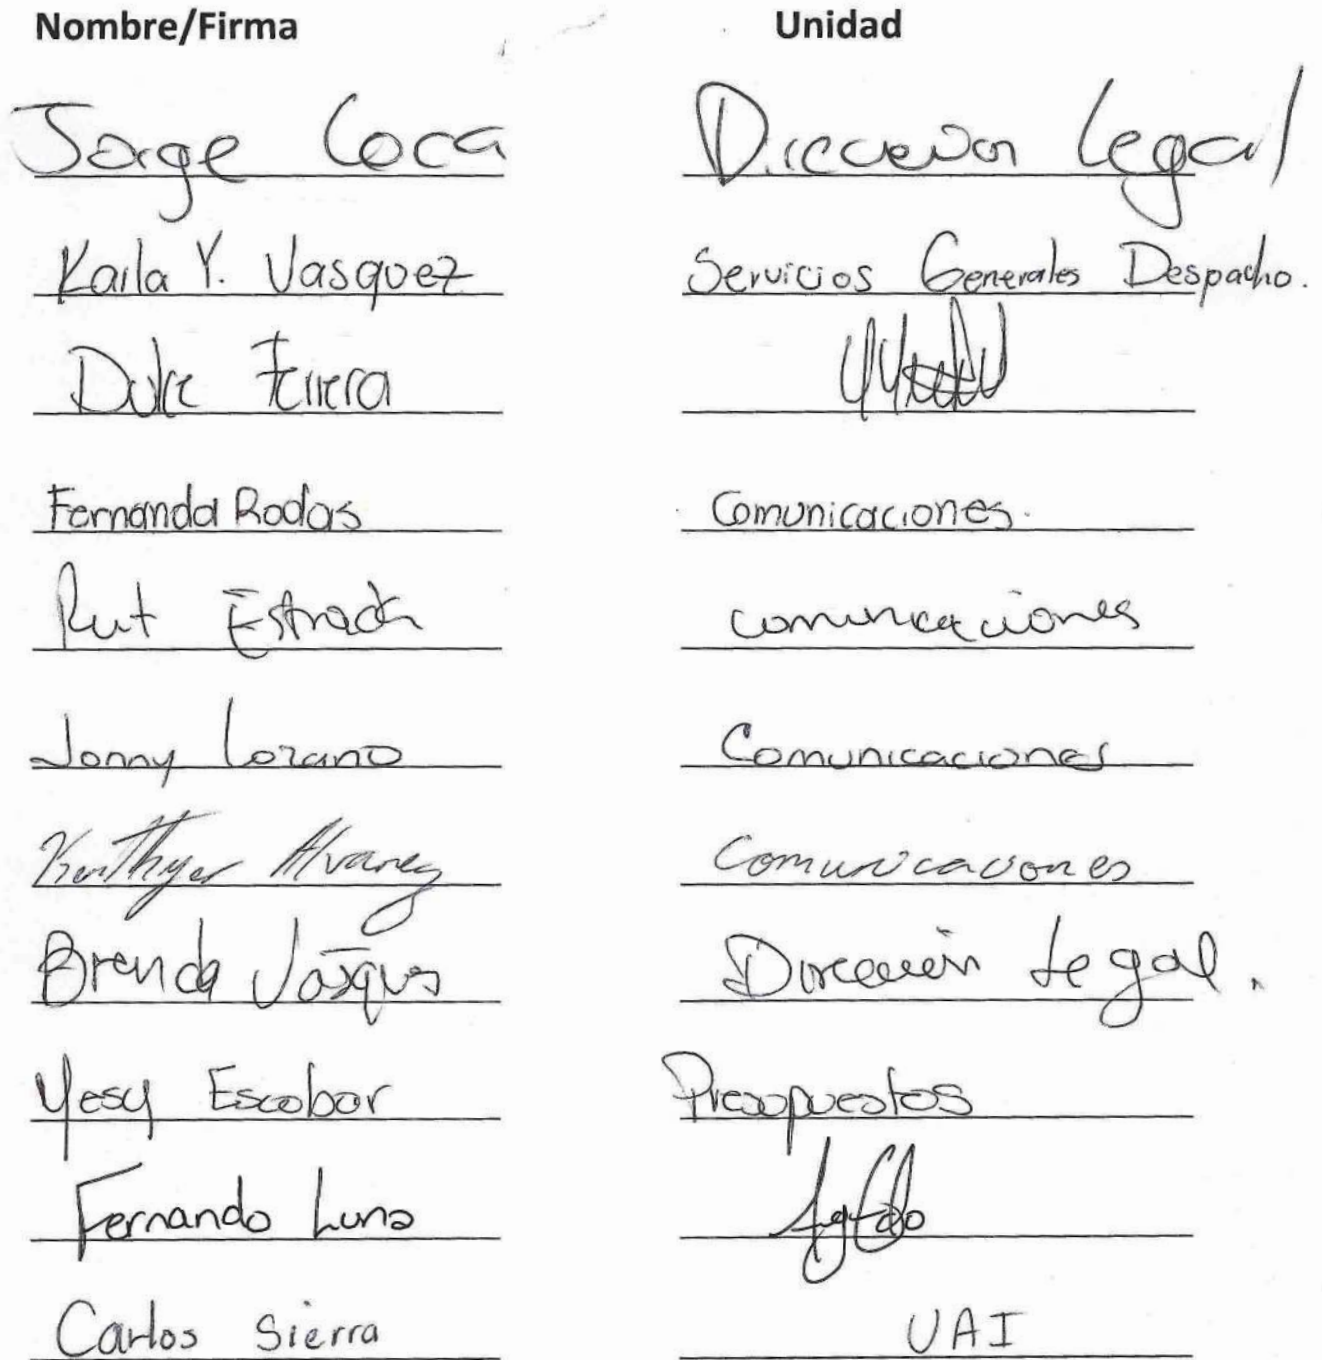 Nombre/Firma Unidad
Jorge Coca Dirección Legal
Karla Y. Vasquez Servicios Generales Despacho.
Dulce Ferrera
Fernanda Rodas Comunicaciones.
Rut Estrada comunicaciones
Jonny Lozano Comunicaciones
Alvarez Comunicaciones
Brenda Vásquez Dirección Legal.
Yesy Escobar Presupuestos
Fernando Luna
Carlos Sierra UAI